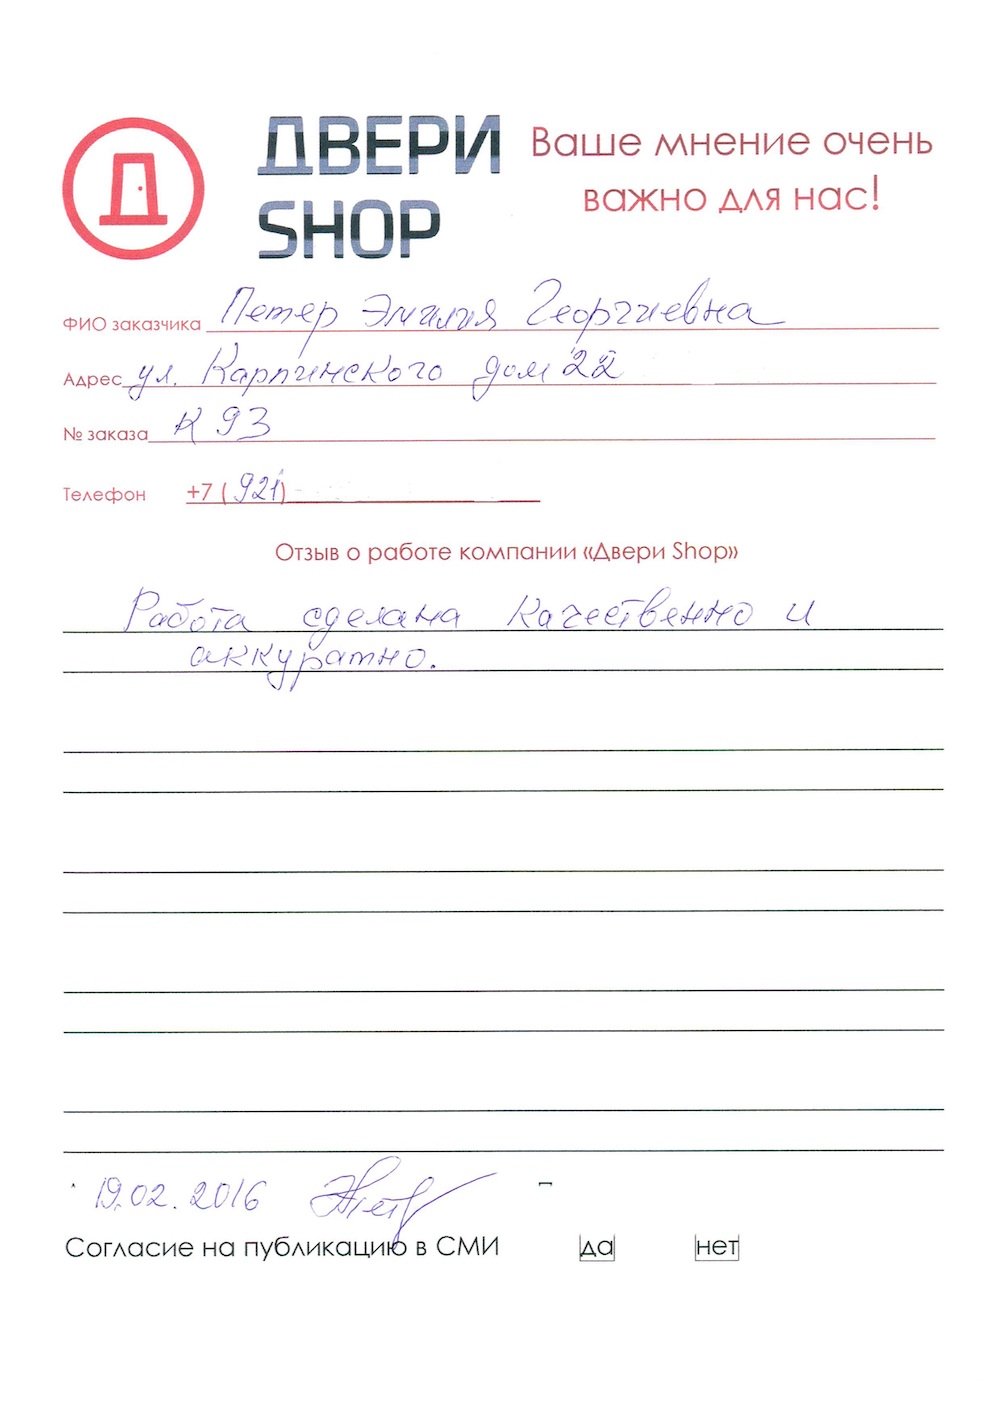 ДВЕРИ SHOP
Ваше мнение очень
важно для нас!
ФИО заказчика Петер Эмилия Георгиевна
Адрес ул. Карпинского дом 22
№ заказа К 93
Телефон +7 (921)
Отзыв о работе компании «Двери Shop»
Работа сделана качественно и
аккуратно.
19.02.2016
Согласие на публикацию в СМИ да нет